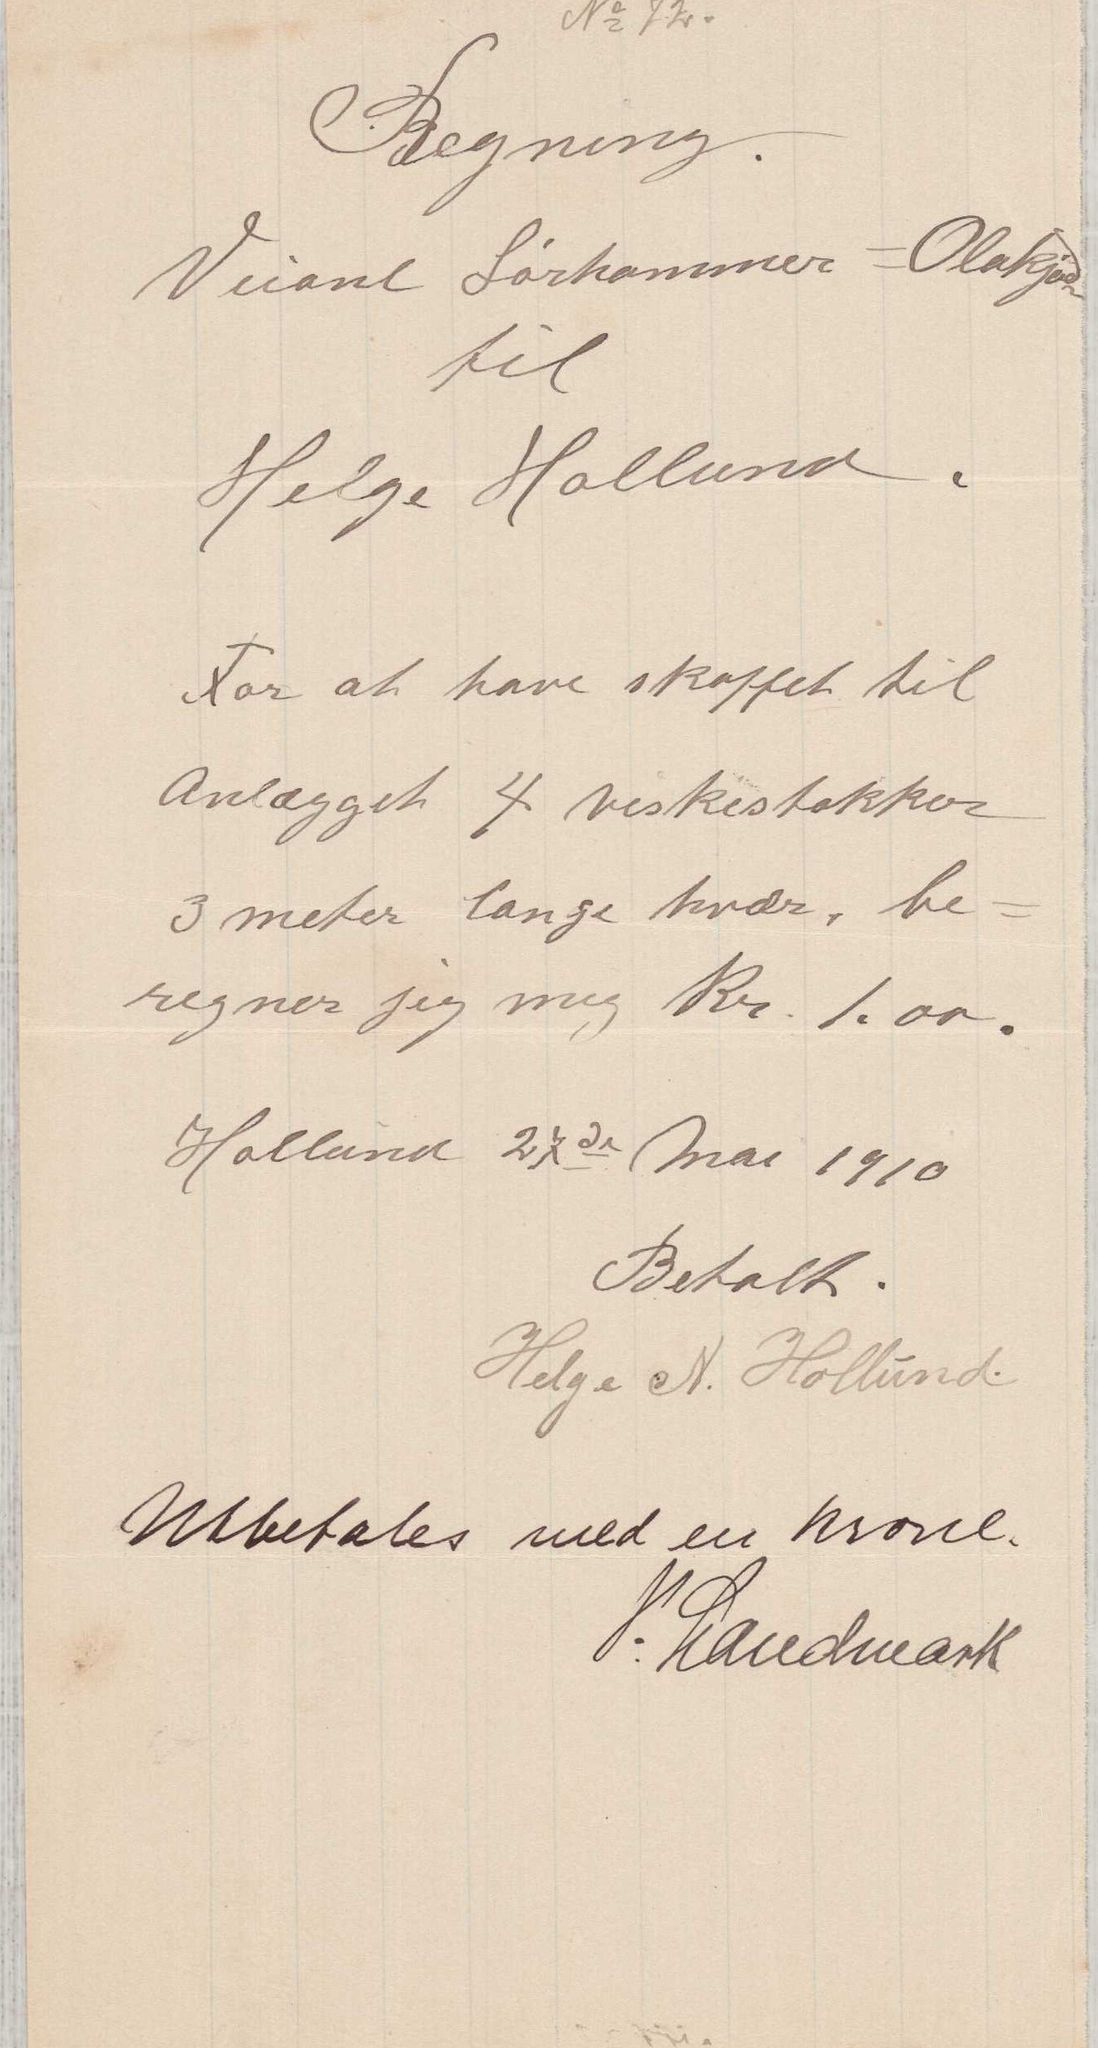 No 72.
Regning.
Veianl Sörhammer = Olakjød
til
Helge Hollund.
For at have skaffet til
Anlægget 4 veskestokker
3 meter lange hvær, be=
regner jeg meg Kr. 1.00.
Hollund 27de Mai 1910
Betalt.
Helge N. Hollund.
Utbetales med en krone.
Landmark